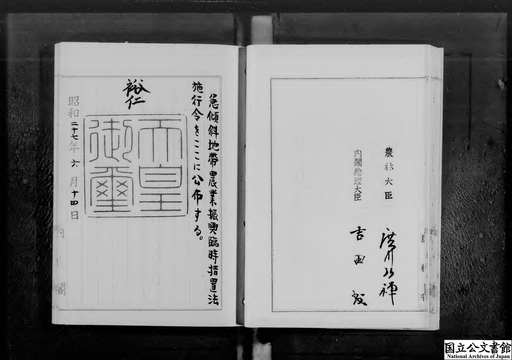 農林大臣
廣川弘禅
内閣総理大臣
吉田茂
急傾斜地帯農業振興臨時措置法
施行令をここに公布する。
裕仁
天皇
御璽
昭和二十七年六月十四日
国立公文書館
National Archives of Japan